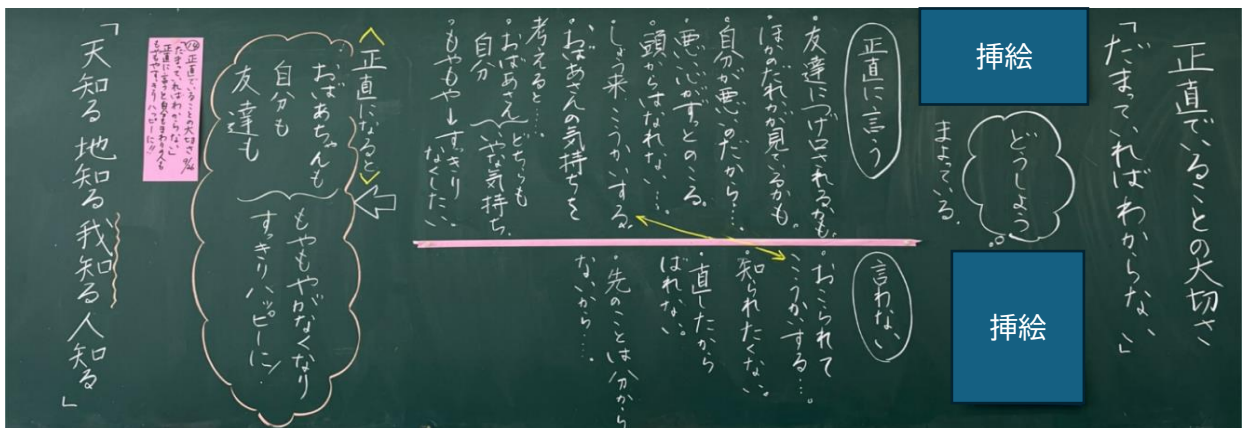 正直でいることの大切さ
「だまっていればわからない」
挿絵
どうしよう
まよっている。
挿絵
正直に言う
・友達につげ口されるかも。
ほかのだれかが見てるかも。
・自分が悪いのだから…。
・悪い心がずっとのこる。
頭からはなれない…。
・しょう来、こうかいする。
・おばあさんの気持ちを
考えると…。
・おばあさん
自分
どちらも
いやな気持ち。
・もやもや→すっきり
なくしたい。
言わない
・おこられて
こうかいする…。
・知られたくない。
・直したから
ばれない。
・先のことは分から
ないから…。
<正直になると>
おばあちゃんも
自分も
友達も
もやもやがなくなり
すっきりハッピーに!
正直でいることの大切さ
「だまっていればわからない」
正直に言うと自分もまわりの人も
もやもやすっきりハッピーに!!
「天知る 地知る 我知る 人知る」